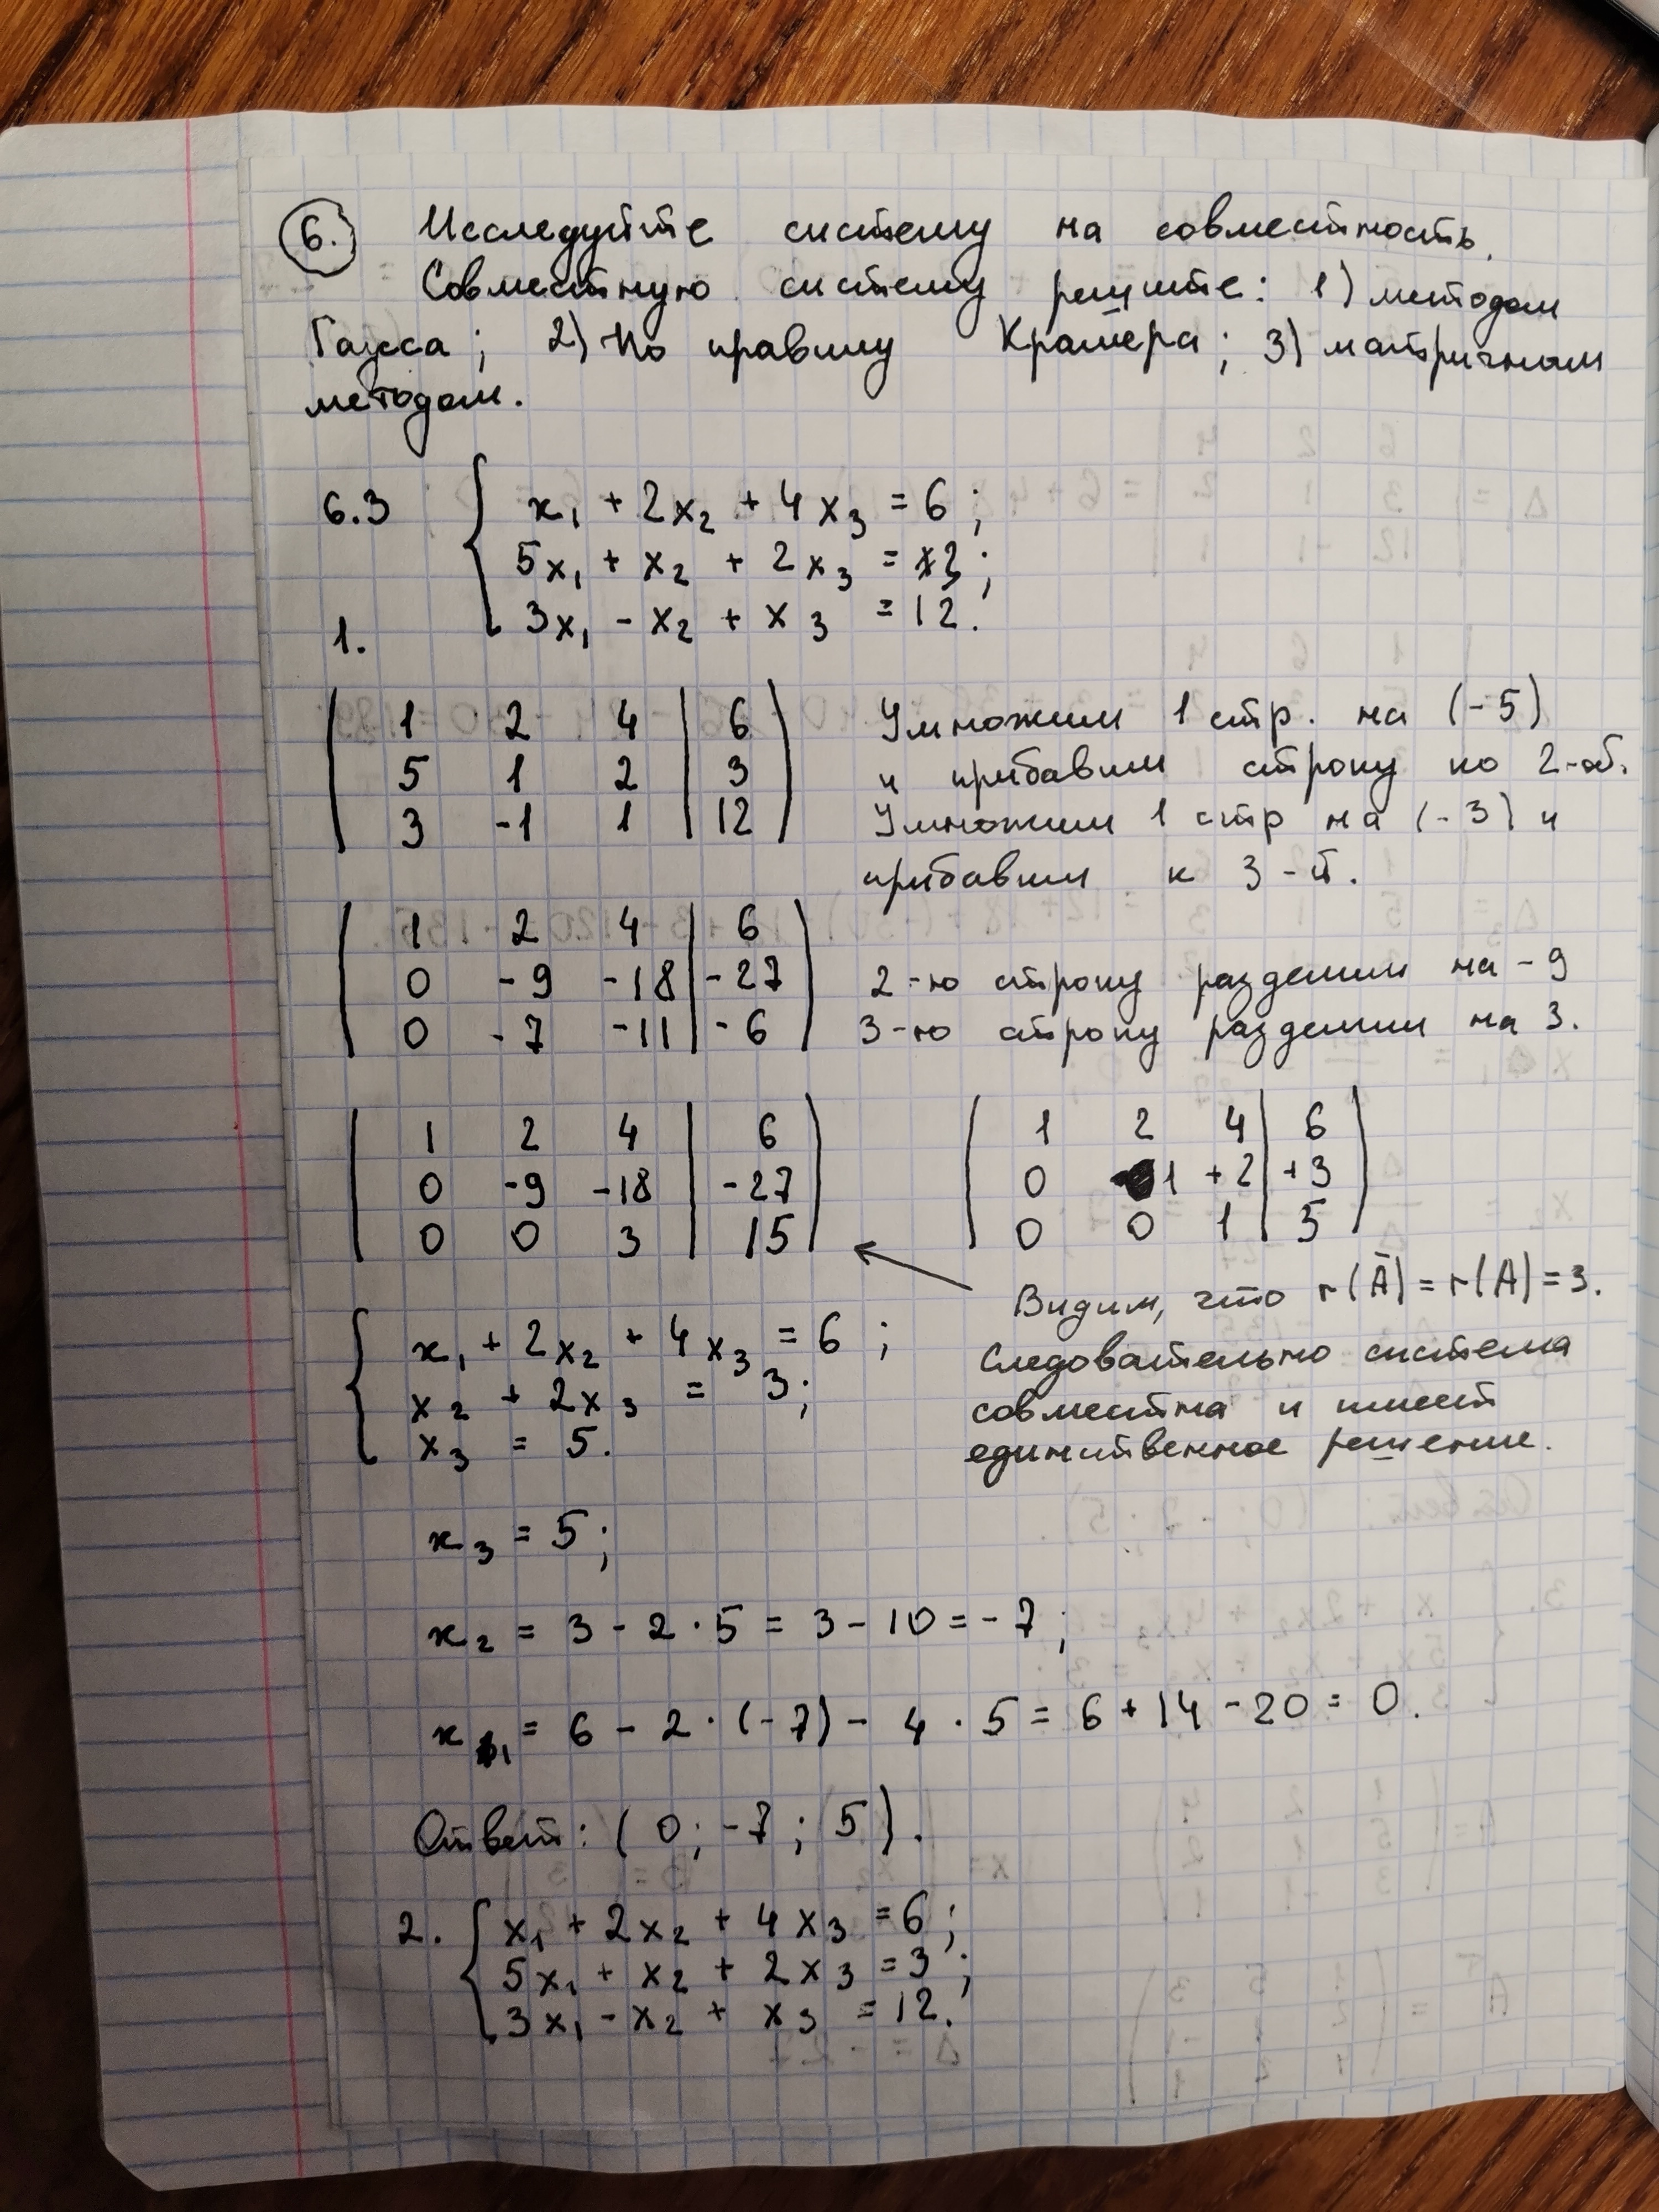 6. Исследуйте систему на совместность.
Совместную систему решите: 1) методом
Гаусса; 2) По правилу Крамера; 3) матричным
методом.
6.3 { x₁ + 2x₂ + 4x₃ = 6;
5x₁ + x₂ + 2x₃ = 3;
3x₁ - x₂ + x₃ = 12.
1.
( 1 2 4 | 6 ) Умножим 1 стр. на (-5)
( 5 1 2 | 3 ) и прибавим строку ко 2-ой.
( 3 -1 1 | 12 ) Умножим 1 стр на (-3) и
прибавим к 3-й.
( 1 2 4 | 6 )
( 0 -9 -18 | -27 ) 2-ю строку разделим на -9
( 0 -7 -11 | -6 ) 3-ю строку разделим на 3.
( 1 2 4 | 6 ) ( 1 2 4 | 6 )
( 0 -9 -18 | -27 ) ( 0 1 +2 | +3 )
( 0 0 3 | 15 ) ( 0 0 1 | 5 )
← Видим, что r(Ā) = r(A) = 3.
Следовательно система
совместна и имеет
единственное решение.
{ x₁ + 2x₂ + 4x₃ = 6;
x₂ + 2x₃ = 3;
x₃ = 5.
x₃ = 5;
x₂ = 3 - 2 · 5 = 3 - 10 = -7;
x₁ = 6 - 2 · (-7) - 4 · 5 = 6 + 14 - 20 = 0.
Ответ: (0; -7; 5).
2. { x₁ + 2x₂ + 4x₃ = 6;
5x₁ + x₂ + 2x₃ = 3;
3x₁ - x₂ + x₃ = 12.